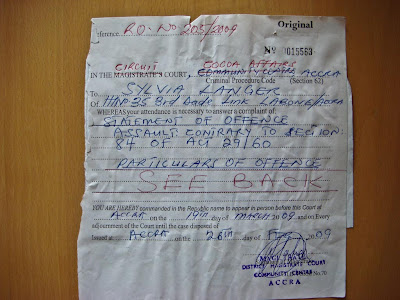 Original
ference. R.O. No 205/2009
No 0015563
CIRCUIT COCOA AFFAIRS
IN THE MAGISTRATE'S COURT, COMMUNITY CENTRE ACCRA
Criminal Procedure Code (Section 62)
To SYLVIA LANGER
Of 35 3rd LINK LABONE/ACCRA
WHEREAS your attendance is necessary to answer a complaint of:
STATEMENT OF OFFENCE
ASSAULT CONTRARY TO SECTION
84 OF ACT 29/60
PARTICULARS OF OFFENCE
SEE BACK
YOU ARE HEREBY commanded in the Republic name to appear in person before this Court at
ACCRA on the 19TH day of MARCH 2009 and on Every
adjournment of the Court until the case disposed of
Issued at ACCRA on the 26TH day of 2009
MAGISTRATE
DISTRICT MAGISTRATE COURT
COMMUNITY CENTRE
ACCRA
No.70